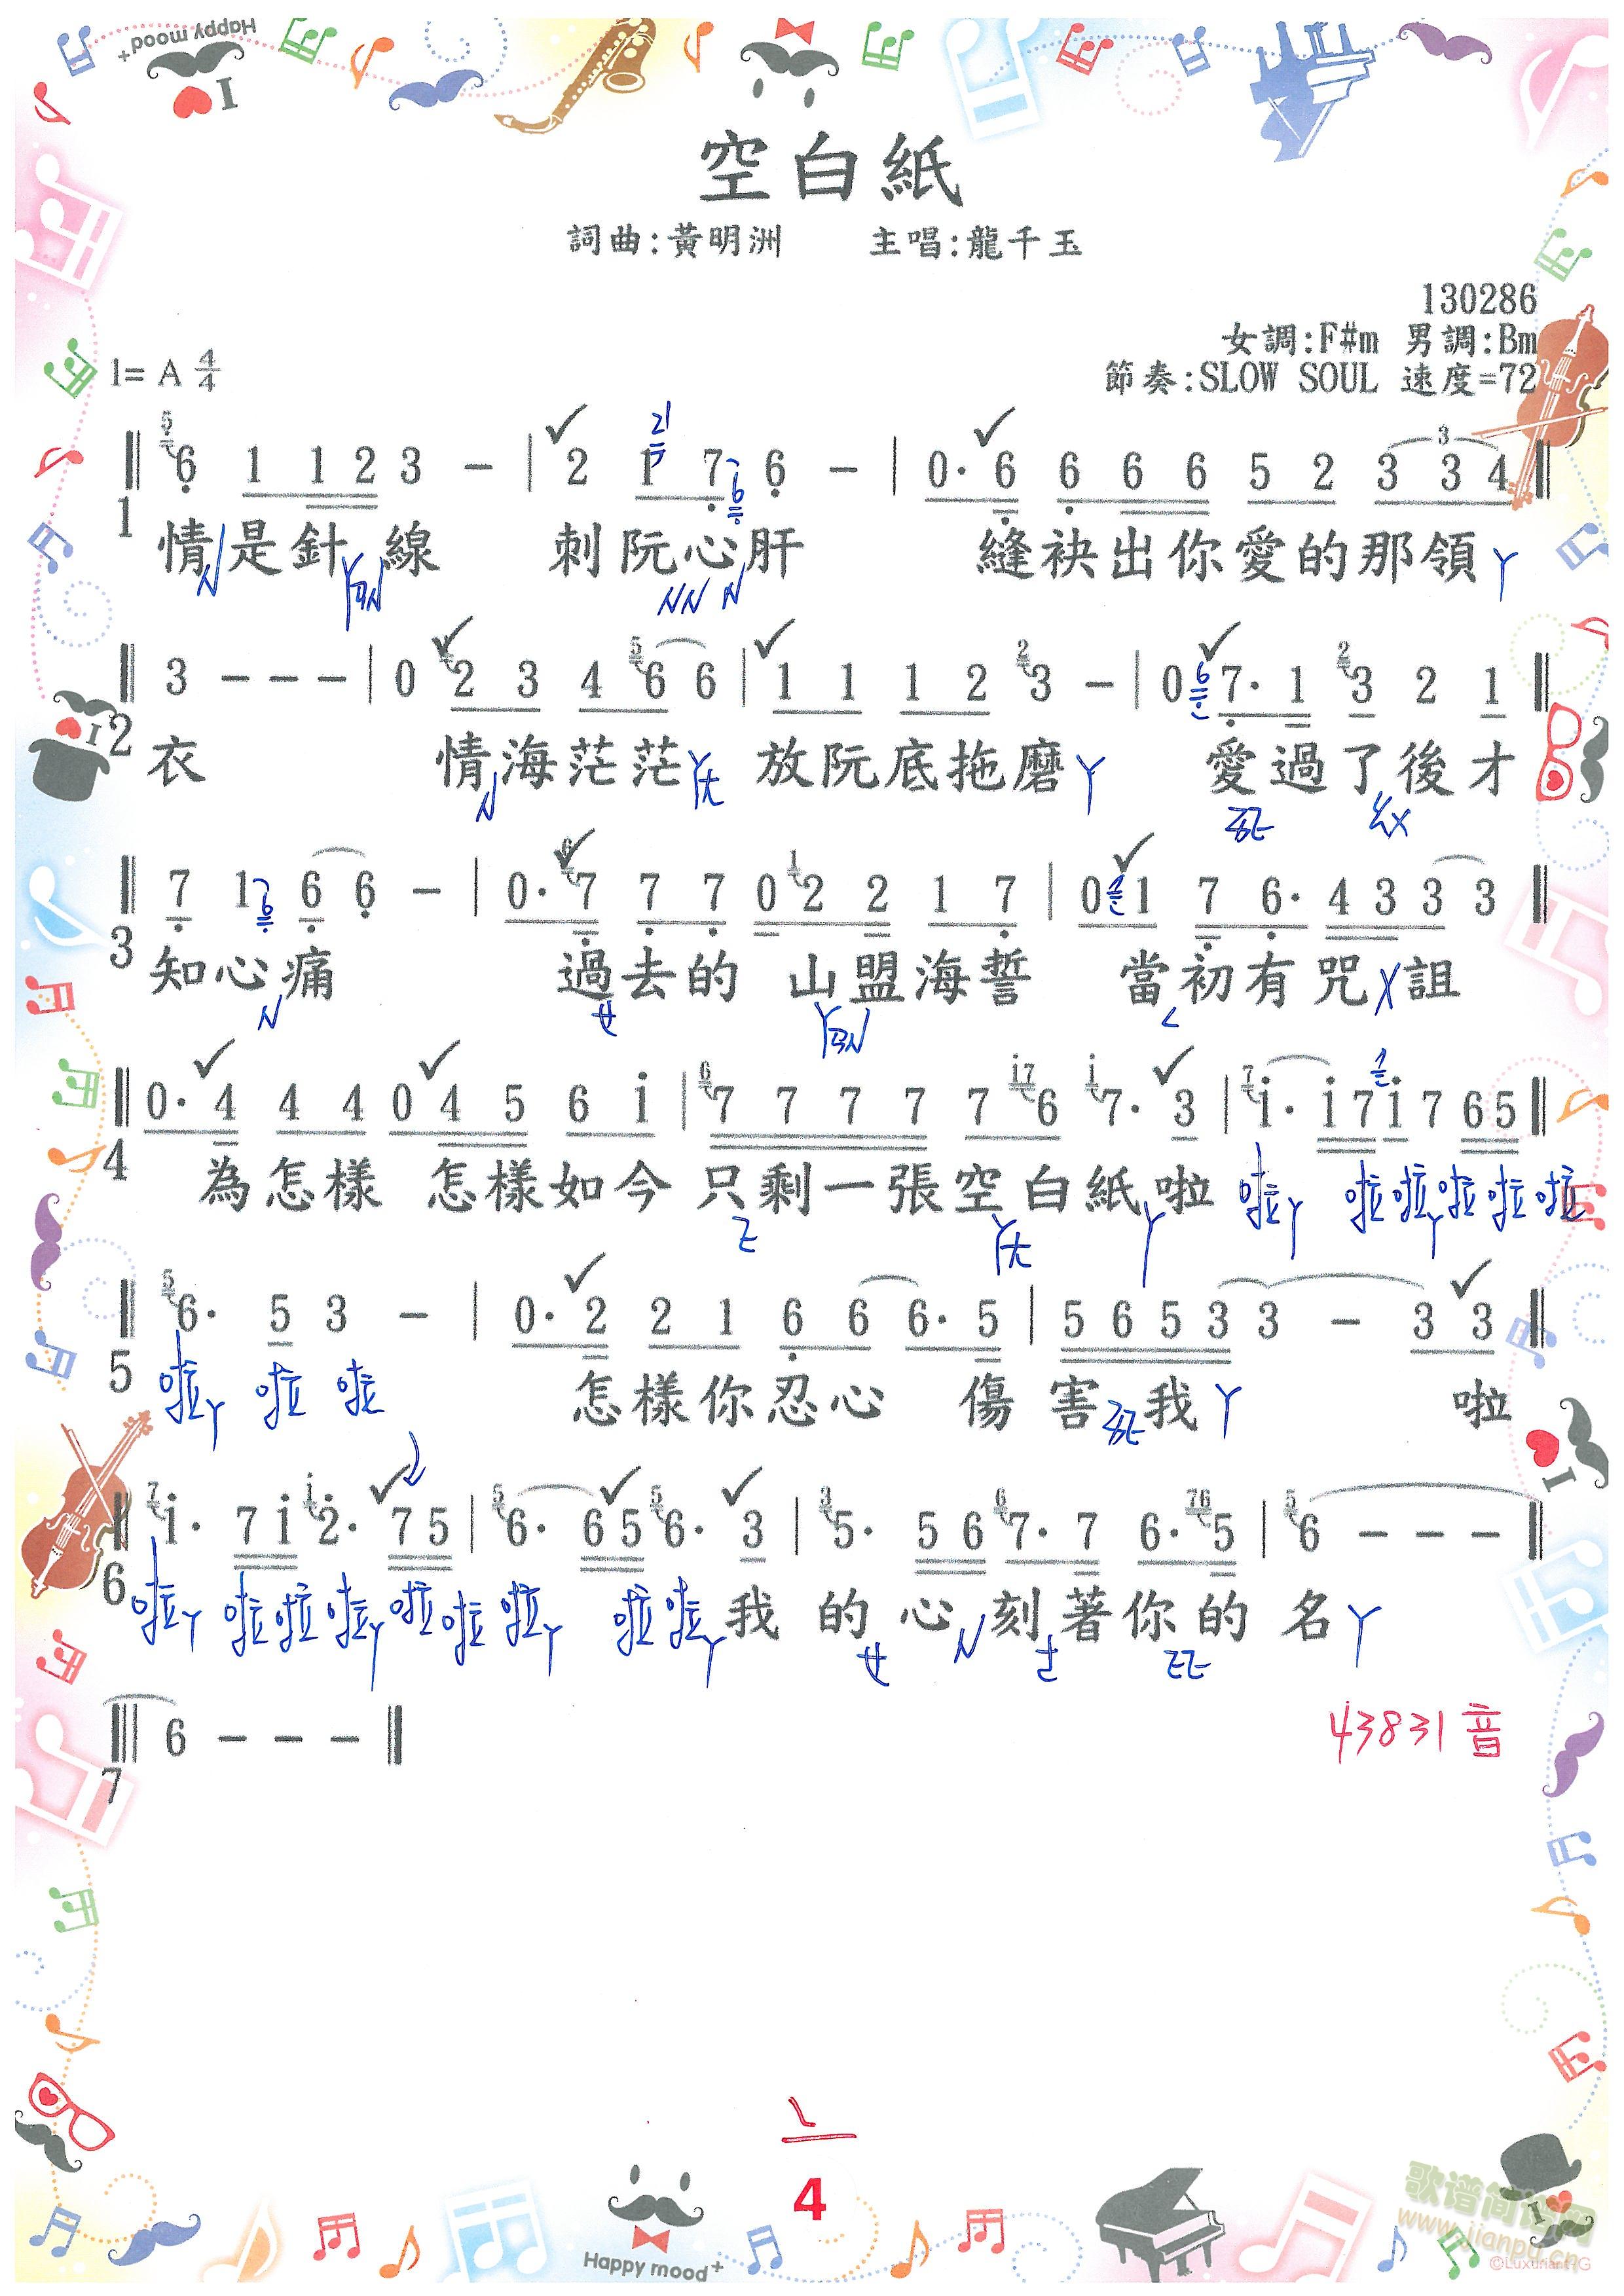 Happy mood+
I
空白紙
詞曲:黃明洲 主唱:龍千玉
130286
女調:F#m 男調:Bm
1= A 4/4 節奏:SLOW SOUL 速度=72
5 6 1 1 2 3 - | 2 1 7 6 - | 0· 6 6 6 6 5 2 3 3 4
1 情是針線 刺阮心肝 縫袂出你愛的那領ㄚ
3 - - - | 0 2 3 4 5 6 6 | 1 1 1 2 2 3 - | 0 6 7· 1 2 3 2 1
2 衣 情海茫茫 放阮底拖磨ㄚ 愛過了後才
7 1 6 6 6 - | 0· 6 7 7 7 0 1 2 2 1 7 | 0 1 1 7 6· 4 3 3 3
3 知心痛 過去的 山盟海誓 當初有咒ㄨ詛
0· 4 4 4 0 4 5 6 i | 6 7 7 7 7 7 i7 6 i 7· 3 | 7 i· i 7 i 7 6 5
4 為怎樣 怎樣如今 只剩一張空白紙啦 啦ㄚ 啦啦ㄚ啦啦啦
5 6· 5 3 - | 0· 2 2 1 6 6 6· 5 | 5 6 5 3 3 - 3 3
5 啦ㄚ 啦 啦 怎樣你忍心 傷害我ㄚ 啦
7 i· 7 i i 2· 7 5 | 5 6· 6 5 5 6· 3 | 3 5· 5 6 6 7· 7 6· 76 5 | 5 6 - - -
6 啦ㄚ 啦啦啦ㄚ啦啦啦ㄚ 啦啦ㄚ我 的心刻著你的 名ㄚ
6 - - -
7
43831 音
4
Happy mood+
歌谱简谱网
www.jianpu.cn